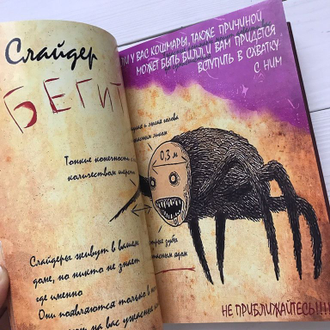 Слайдер
БЕГИТ
ЛИ У ВАС КОШМАРЫ, ТАКЖЕ ПРИЧИНОЙ
МОЖЕТ БЫТЬ БИЛЛ И ВАМ ПРИДЕТСЯ
ВСТУПИТЬ В СХВАТКУ
С НИМ
и лысая голова
Тонкие конечности
количеством шерсти
0,3 м
зубы
ядом
Слайдеры живут в вашем
доме, но никто не знает
где именно
Они появляются только
на вас
НЕ ПРИБЛИЖАЙТЕСЬ!!!!